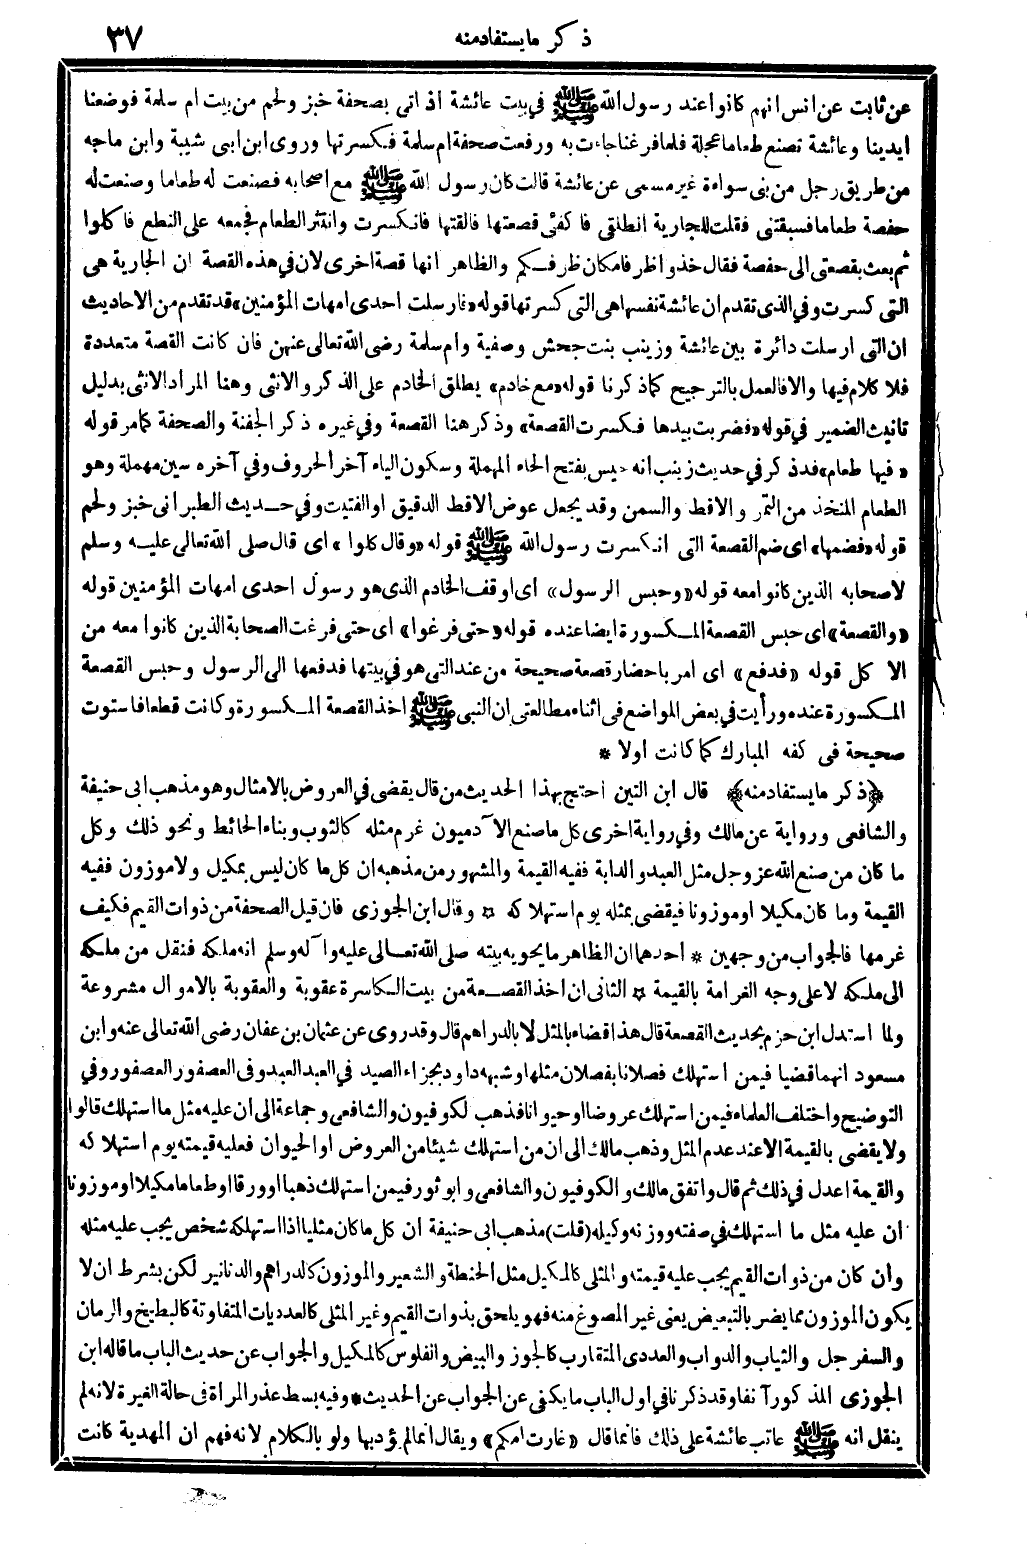 ذكر مايستفادمنه ٣٧
عن ثابت عن انس انهم كانوا عند رسول الله ﷺ في بيت عائشة اذ اتى بصحفة خبز ولحم من بيت ام سلمة فوضعنا
ايدينا وعائشة تصنع طعاما عجلة فلما فرغنا جاءت به ورفعت صحفة ام سلمة فكسرتها وروى ابن ابى شيبة وابن ماجه
من طريق رجل من بنى سواءة غير مسمى عن عائشة قالت كان رسول الله ﷺ مع اصحابه فصنعت له طعاما وصنعت له
حفصة طعاما فسبقتنى فقلت للجارية انطلقى فا كفئى قصعتها فالقتها فانكسرت وانتثر الطعام فجمعه على النطع فا كلوا
ثم بعث بقصعتى الى حفصة فقال خذوا ظرفا مكان ظرفكم والظاهر انها قصة اخرى لان في هذه القصة ان الجارية هى
التى كسرت وفي الذى تقدم ان عائشة نفسها هى التى كسرتها قوله «فارسلت احدى امهات المؤمنين» قد تقدم من الاحاديث
ان التى ارسلت دائرة بين عائشة وزينب بنت جحش وصفية وام سلمة رضى الله تعالى عنهن فان كانت القصة متعددة
فلا كلام فيها والا فالعمل بالترجيح كما ذكرنا قوله «مع خادم» يطلق الخادم على الذكر والانثى وهنا المراد الانثى بدليل
تانيث الضمير في قوله «فضربت بيدها فكسرت القصعة» وذكر هنا القصعة وفي غيره ذكر الجفنة والصحفة كما مر قوله
«فيها طعام» قد ذكر في حديث زينب انه حيس بفتح الحاء المهملة وسكون الياء آخر الحروف وفي آخره سين مهملة وهو
الطعام المتخذ من التمر والاقط والسمن وقد يجعل عوض الاقط الدقيق او الفتيت وفي حديث الطبرانى خبز ولحم
قوله «فضمها» اى ضم القصعة التى انكسرت رسول الله ﷺ قوله «وقال كلوا» اى قال صلى الله تعالى عليه وسلم
لاصحابه الذين كانوا معه قوله «وحبس الرسول» اى اوقف الخادم الذى هو رسول احدى امهات المؤمنين قوله
«والقصعة» اى حبس القصعة المكسورة ايضا عنده قوله «حتى فرغوا» اى حتى فرغت الصحابة الذين كانوا معه من
الا كل قوله «فدفع» اى امر باحضار قصعة صحيحة من عند التى هو في بيتها فدفعها الى الرسول وحبس القصعة
المكسورة عنده ورأيت في بعض المواضع في اثناء مطالعتى ان النبى ﷺ اخذ القصعة المكسورة وكانت قطعا فاستوت
صحيحة فى كفه المبارك كما كانت اولا *
﴿ذكر مايستفادمنه﴾ قال ابن التين احتج بهذا الحديث من قال يقضى في العروض بالامثال وهو مذهب ابى حنيفة
والشافعى ورواية عن مالك وفي رواية اخرى كل ما صنع الآدميون غرم مثله كالثوب وبناء الحائط ونحو ذلك وكل
ما كان من صنع الله عز وجل مثل العبد والدابة ففيه القيمة والمشهور من مذهبه ان كل ما كان ليس بمكيل ولا موزون ففيه
القيمة وما كان مكيلا او موزونا فيقضى بمثله يوم استهلا كه * وقال ابن الجوزى فان قيل الصحفة من ذوات القيم فكيف
غرمها فالجواب من وجهين * احدهما ان الظاهر ما يحويه بيته صلى الله تعالى عليه وآله وسلم انه ملكه فنقل من ملكه
الى ملكه لا على وجه الغرامة بالقيمة * الثانى ان اخذ القصعة من بيت الكاسرة عقوبة والعقوبة بالاموال مشروعة
ولما استدل ابن حزم بحديث القصعة قال هذا قضاء بالمثل لا بالدراهم قال وقد روى عن عثمان بن عفان رضى الله تعالى عنه وابن
مسعود انهما قضيا فيمن استهلك فصلانا بفصلان مثلها وشبهه داود بجزاء الصيد في العبد العبد وفى العصفور العصفور وفي
التوضيح واختلف العلماء فيمن استهلك عروضا او حيوانا فذهب لكوفيون والشافعى وجماعة الى ان عليه مثل ما استهلك قالوا
ولا يقضى بالقيمة الا عند عدم المثل وذهب مالك الى ان من استهلك شيئا من العروض او الحيوان فعليه قيمته يوم استهلا كه
والقيمة اعدل في ذلك ثم قال واتفق مالك والكوفيون والشافعى وابو ثور فيمن استهلك ذهبا او ورقا او طعاما مكيلا او موزونا
ان عليه مثل ما استهلك في صفته ووزنه وكيله (قلت) مذهب ابى حنيفة ان كل ما كان مثليا اذا استهلكه شخص يجب عليه مثله
وان كان من ذوات القيم يجب عليه قيمته والمثلى كالمكيل مثل الحنطة والشعير والموزون كالدراهم والدنانير لكن بشرط ان لا
يكون الموزون مما يضر بالتبعيض يعنى غير المصوغ منه فهو يلحق بذوات القيم وغير المثلى كالعدديات المتفاوتة كالبطيخ والرمان
والسفرجل والثياب والدواب والعددى المتقارب كالجوز والبيض والفلوس كالمكيل والجواب عن حديث الباب ما قاله ابن
الجوزى المذكور آنفا وقد ذكرنا في اول الباب ما يكفى عن الجواب عن الحديث * وفيه بسط عذر المرأة فى حالة الغيرة لانه لم
ينقل انه ﷺ عاتب عائشة على ذلك فانما قال «غارت امكم» ويقال انما لم يؤدبها ولو بالكلام لانه فهم ان المهدية كانت